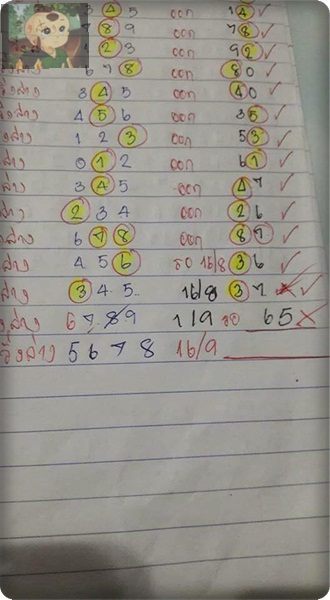 3 4 5 ออก 14 ✓
7 8 9 ออก 78 ✓
1 2 3 ออก 92 ✓
วิ่งล่าง 6 7 8 ออก 80 ✓
วิ่งล่าง 3 4 5 ออก 40 ✓
วิ่งล่าง 4 5 6 ออก 35 ✓
วิ่งล่าง 1 2 3 ออก 53 ✓
ล่าง 0 1 2 ออก 61 ✓
ล่าง 3 4 5 ออก 47 ✓
ล่าง 2 3 4 ออก 26 ✓
ล่าง 6 7 8 ออก 87 ✓
ล่าง 4 5 6 16/8 36 ✓
ล่าง 3 4 5 16/8 37 ✓
ล่าง 6 7 8 9 1/9 65 ✗
วิ่งล่าง 5 6 7 8 16/9